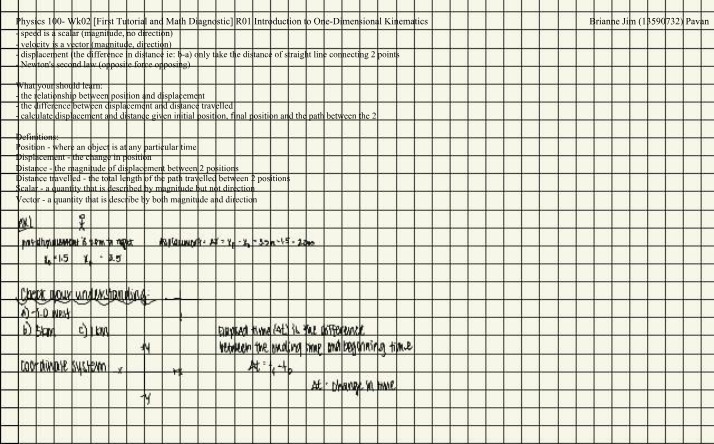 Physics 100- Wk02 [First Tutorial and Math Diagnostic] R01 Introduction to One-Dimensional Kinematics
Brianne Jim (13590732) Pavan
- speed is a scalar (magnitude, no direction)
- velocity is a vector (magnitude, direction)
- displacement (the difference in distance ie: b-a) only take the distance of straight line connecting 2 points
- Newton's second law (opposite force opposing)
What your should learn:
- the relationship between position and displacement
- the difference between displacement and distance travelled
- calculate displacement and distance given initial position, final position and the path between the 2
Definitions:
Position - where an object is at any particular time
Displacement - the change in position
Distance - the magnitude of displacement between 2 positions
Distance travelled - the total length of the path travelled between 2 positions
Scalar - a quantity that is described by magnitude but not direction
Vector - a quantity that is describe by both magnitude and direction
ex.)
displacement is 2.0m to right
displacement = Δx = xf - x0 = 3.5m - 1.5 = 2.0m
x0 = 1.5 xf = 3.5
Check your understanding:
b) 5km c) 1 km
Elapsed time (Δt) is the difference
between the ending time and beginning time
+y
coordinate system
-x
+x
Δt = tf - t0
Δt = change in time
-y